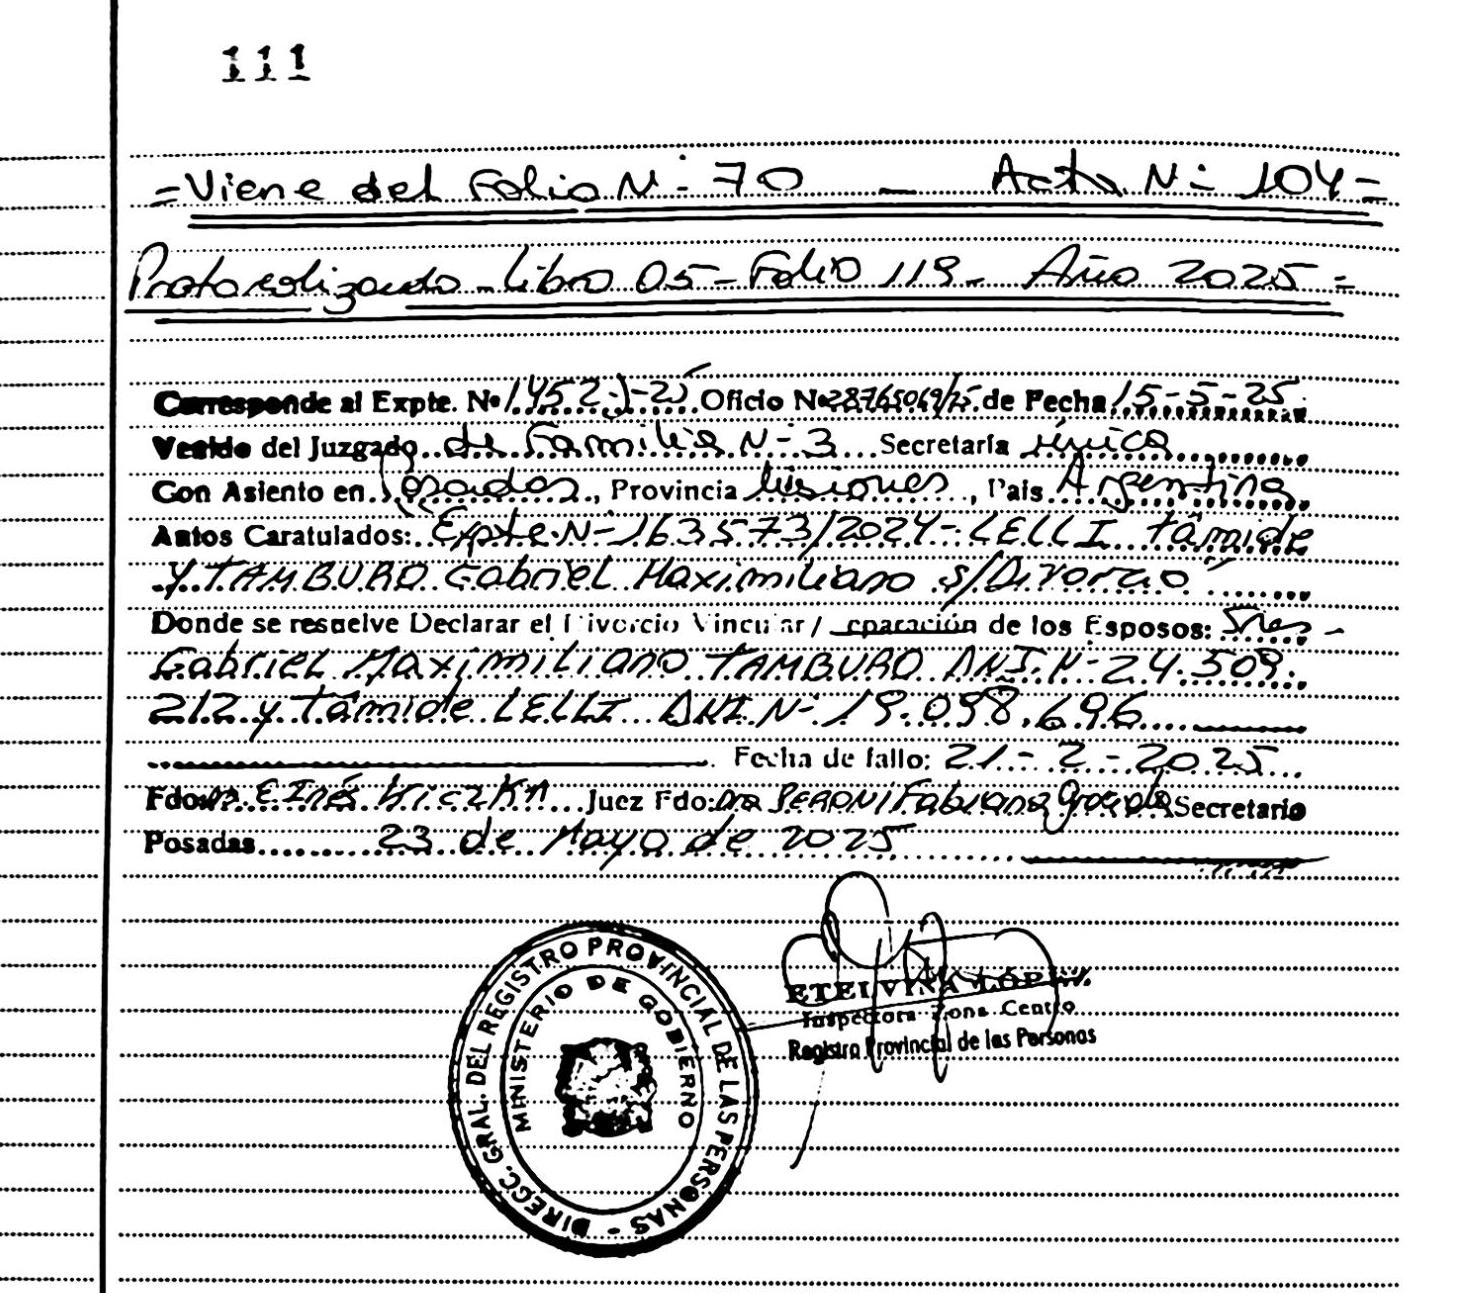 111
=Viene del Folio N- 70 — Acta N- 104=
Protocolizado - Libro 05 - Folio 119 - Año 2025 =
Corresponde al Expte. Nº 1452-J-25 Oficio Nº 28765069/25 de Fecha 15-5-25
Venido del Juzgado de Familia N-3 Secretaría única
Con Asiento en Posadas, Provincia Misiones, País Argentina
Autos Caratulados: Expte N-163573/2024-LELLI Tâmide
y TAMBURO Gabriel Maximiliano s/Divorcio"
Donde se resuelve Declarar el Divorcio Vincular/ Separación de los Esposos: Sres -
Gabriel Maximiliano TAMBURO DNI.N-24.509.
212 y Tâmide LELLI DNI N- 19.098.696
Fecha de fallo: 21-2-2025
Fdo: E Inés Juez Fdo: Dra PERONI Fabiana Graciela Secretario
Posadas 23 de Mayo de 2025
ETELVINA LÓPEZ
Inspectora Zona Centro
Registro Provincial de las Personas
DIRECC. GRAL. DEL REGISTRO PROVINCIAL DE LAS PERSONAS -
MINISTERIO DE GOBIERNO